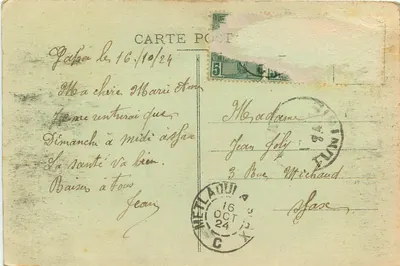 CARTE POST
Gafsa le 16/10/24
Ma chère Marie
Je ne rentrerai que
Dimanche à midi à Sfax
La santé va bien.
Baisers à tous
Jean
5
Madame
Jean Joly
3 Rue Michaud
Sfax
TUNI
METLAOUI
16
OCT
24